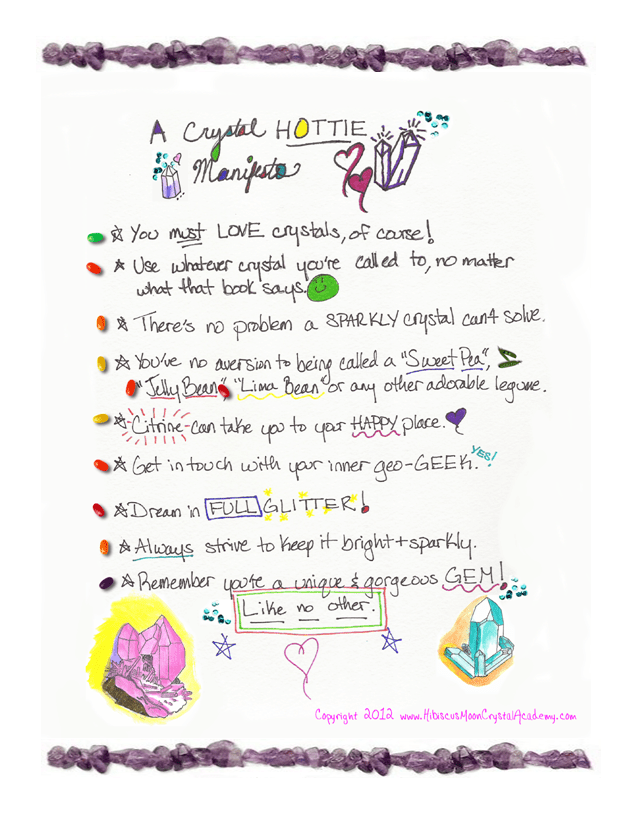 A Crystal HOTTIE
Manifesto
☆ You must LOVE crystals, of course!
☆ Use whatever crystal you're called to, no matter
what that book says.
☆ There's no problem a SPARKLY crystal can't solve.
☆ You've no aversion to being called a "Sweet Pea",
"Jelly Bean", "Lima Bean" or any other adorable legume.
☆ Citrine can take you to your HAPPY place.
☆ Get in touch with your inner geo-GEEK. YES!
☆ Dream in FULL GLITTER!
☆ Always strive to keep it bright + sparkly.
☆ Remember you're a unique & gorgeous GEM!
Like no other.
Copyright 2012 www.HibiscusMoonCrystalAcademy.com